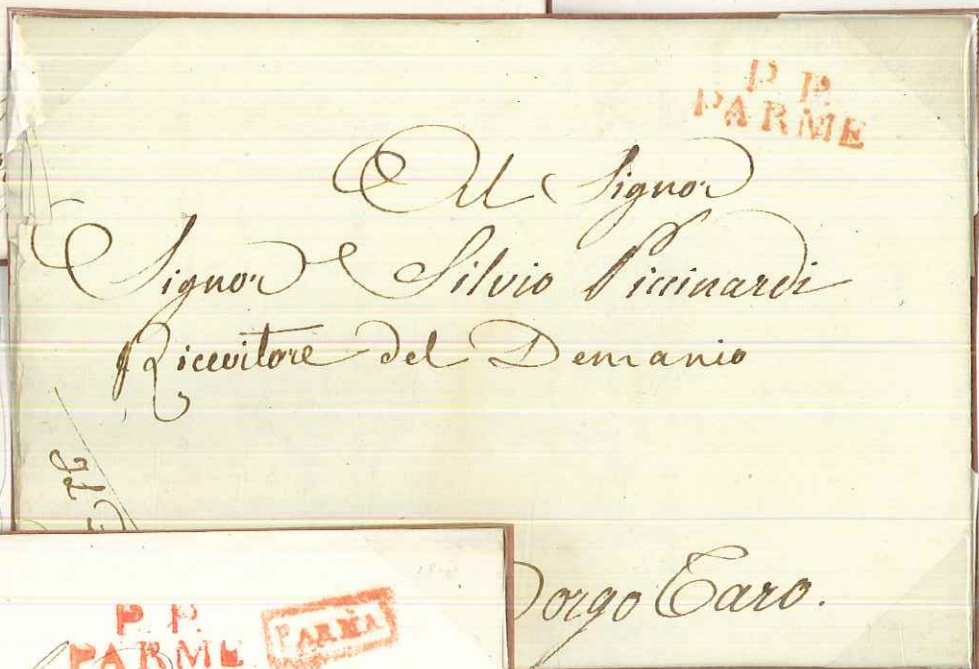 P. P.
PARME
Al Signor
Signor Silvio Piccinardi
Ricevitore del Demanio
Il
orgo Taro.
P. P.
PARME
PARMA